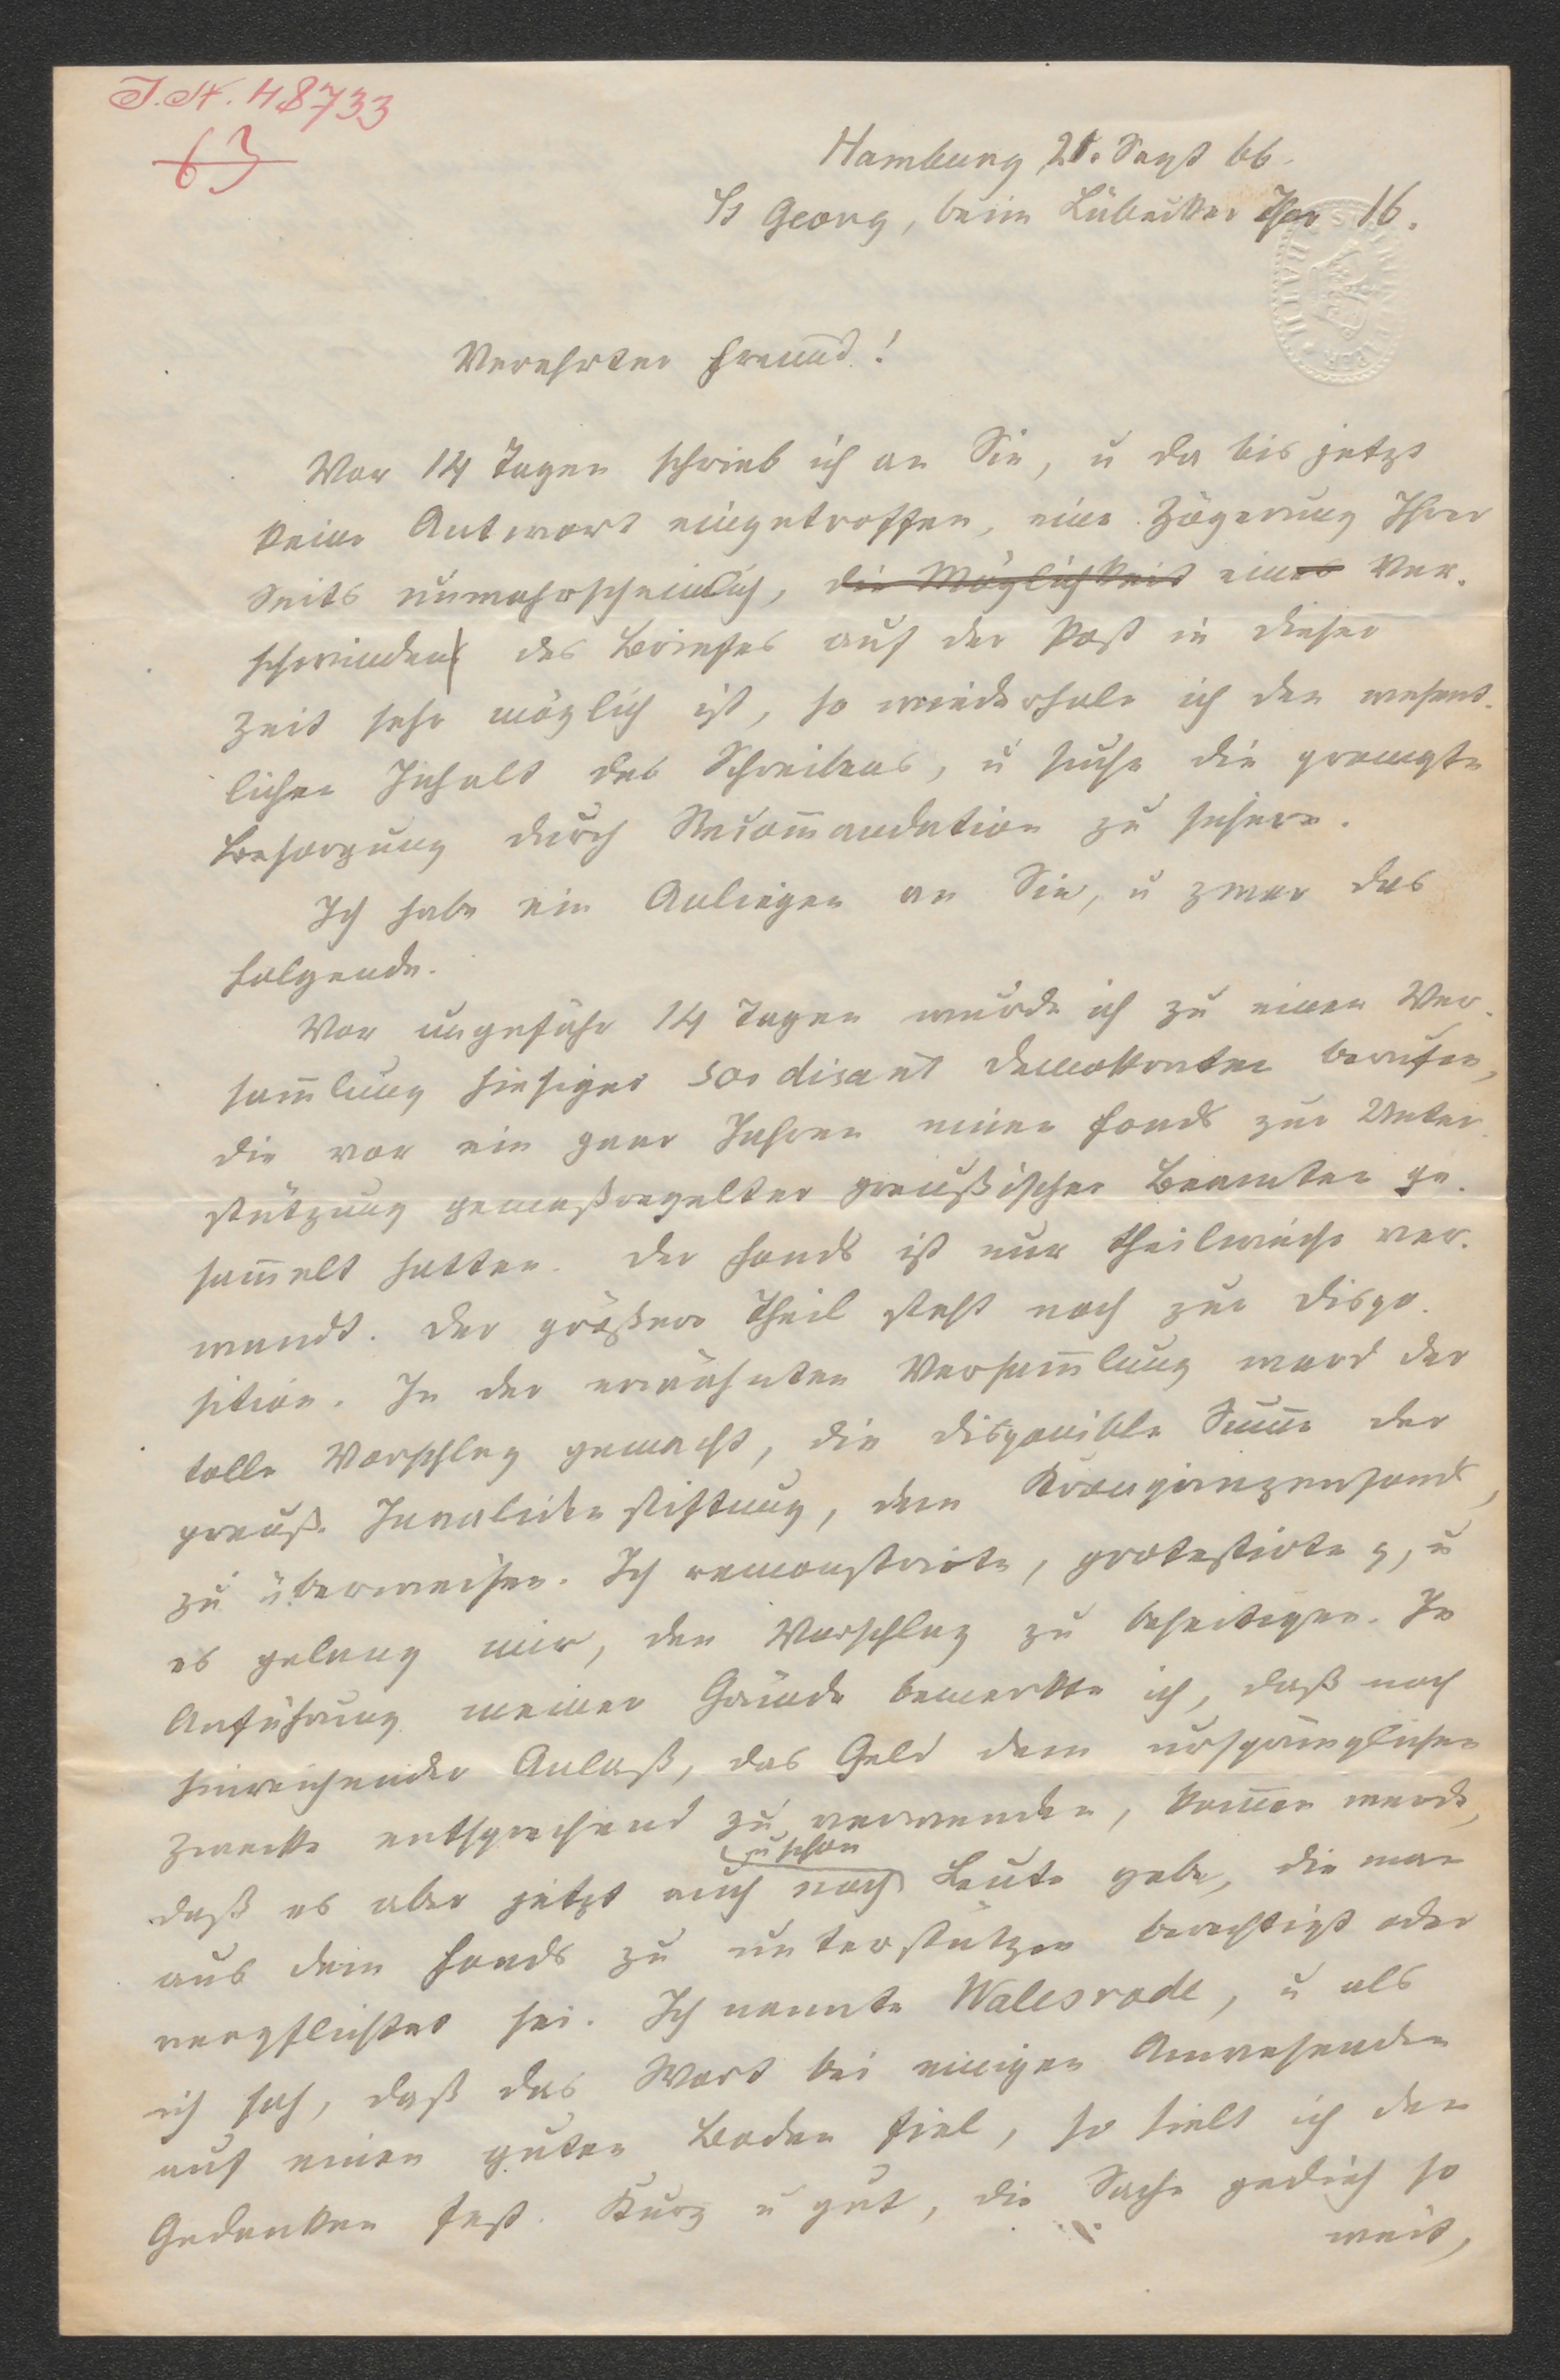 I.N. 48733
63
Hamburg 21. Sept 66.
St Georg, beim Lübecker Thor 16.
Verehrter Freund!
Vor 14 Tagen schrieb ich an Sie, u da bis jetzt
keine Antwort eingetroffen, eine Zögerung Ihrer
Seits unwahrscheinlich, die Möglichkeit eines Ver-
schwinden des Briefes auf der Post in dieser
Zeit sehr möglich ist, so wiederhole ich den wesent-
lichen Inhalt des Schreibens, u suche die prompte
Besorgung durch Recom̅andation zu sichern.
Ich habe ein Anliegen an Sie, u zwar das
folgende.
Vor ungefähr 14 Tagen wurde ich zu einer Ver-
sam̅lung hiesiger soi disant Demokraten berufen,
die vor ein paar Jahren einen Fonds zur Unter-
stützung gemaßregelter preußischer Beamten ge-
sam̅elt hatten. Der Fonds ist nur theilweise ver-
wandt. Der größere Theil steht noch zur Dispo-
sition. In der erwähnten Versam̅lung ward der
tolle Vorschlag gemacht, die disponible Sum̅e der
preuß. Invalidenstiftung, dem Kronprinzenfonds,
zu überweisen. Ich remonstrirte, protestirte, u
es gelang mir, den Vorschlag zu beseitigen. In
Anführung meiner Gründe bemerkte ich, daß noch
hinreichender Anlaß, das Geld dem ursprünglichen
Zwecke entsprechend zu verwenden, kom̅en werde,
u schon
daß es aber jetzt auch noch Leute gebe, die man
aus dem Fonds zu unterstützen berechtigt oder
verpflichtet sei. Ich nannte Walesrode, u als
ich sah, daß das Wort bei einigen Anwesenden
auf einen guten Boden fiel, so hielt ich den
Gedanken fest. Kurz u gut, die Sache gedieh so
weit,